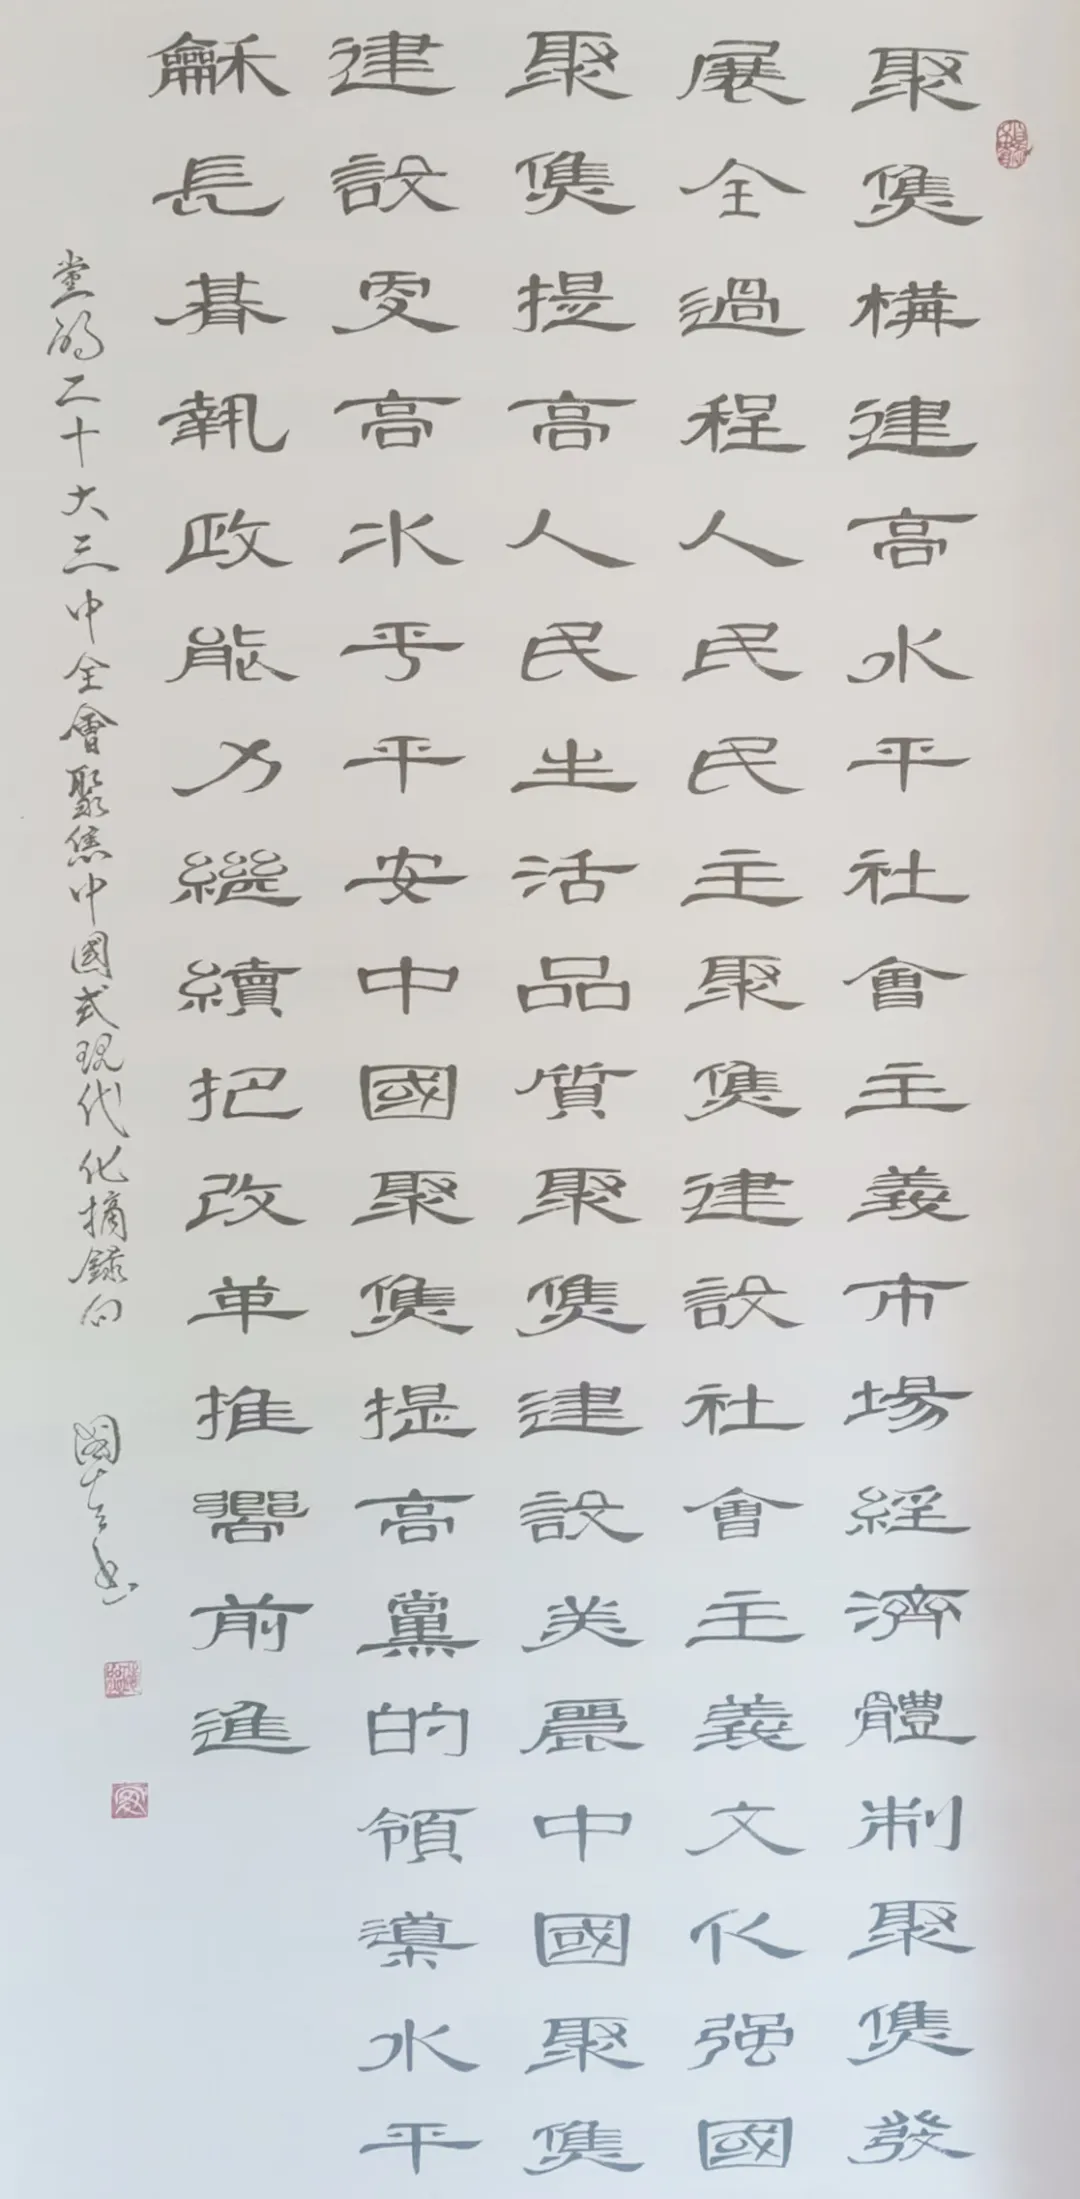 聚焦構建高水平社會主義市場經濟體制聚焦發
展全過程人民民主聚焦建設社會主義文化强國
聚焦提高人民生活品質聚焦建設美麗中國聚焦
建設更高水平平安中國聚焦提高黨的領導水平
龢長碁執政能力繼續把改革推嚮前進
黨的二十大三中全會聚焦中國式現代化摘錄句